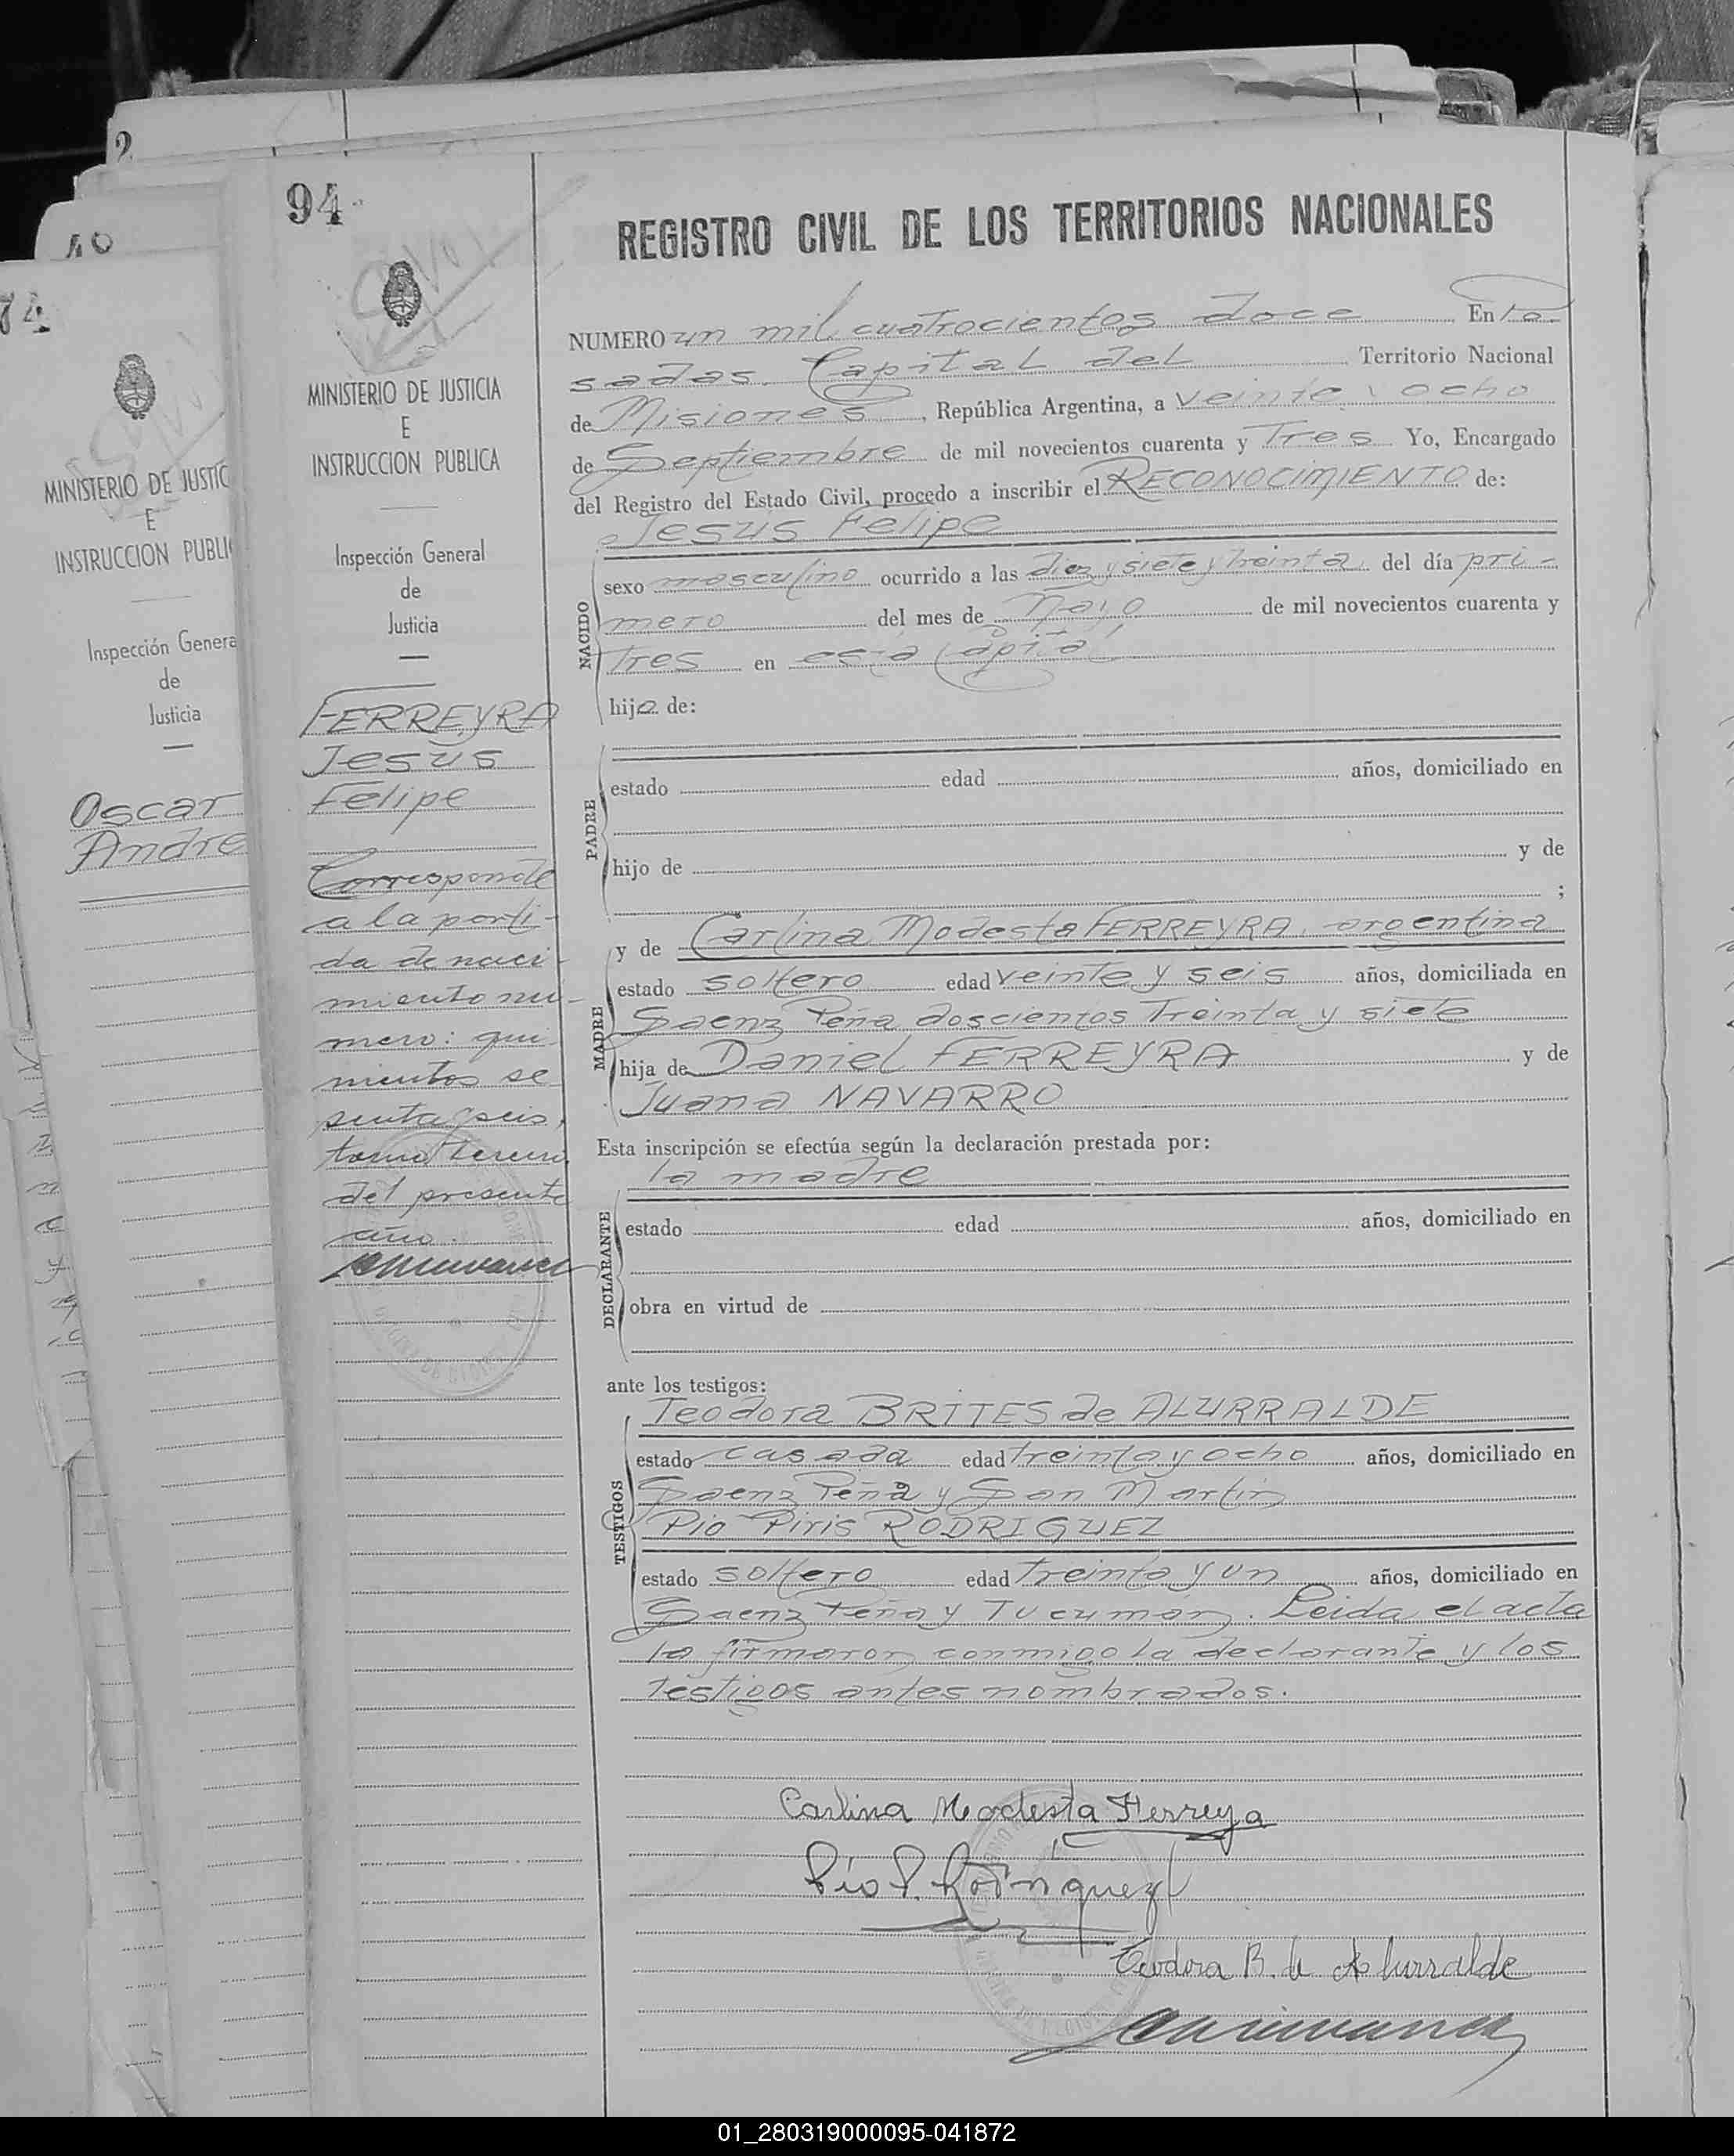 2
48
74
MINISTERIO DE JUSTIC
E
INSTRUCCION PUBLI
Inspección Genera
de
Justicia
Oscar
Andre
94
MINISTERIO DE JUSTICIA
E
INSTRUCCION PUBLICA
Inspección General
de
Justicia
FERREYRA
Jesús
Felipe
Corresponde
a la parti-
da de naci-
miento nu-
mero: qui-
nientos se
senta y seis,
tomo tercero
del presente
año.
REGISTRO CIVIL DE LOS TERRITORIOS NACIONALES
NUMERO un mil cuatrocientos doce En Po-
sadas. Capital del Territorio Nacional
de Misiones, República Argentina, a veinte y ocho
de Septiembre de mil novecientos cuarenta y Tres Yo, Encargado
del Registro del Estado Civil, procedo a inscribir el RECONOCIMIENTO de:
Jesús Felipe
NACIDO
sexo masculino ocurrido a las diez y siete y treinta, del día pri-
mero del mes de Mayo de mil novecientos cuarenta y
Tres en esta Capital
hijo de:
PADRE
estado edad años, domiciliado en
hijo de y de
;
MADRE
y de Carlina Modesta FERREYRA, argentina
estado soltero edad veinte y seis años, domiciliada en
Saenz Peña doscientos Treinta y siete
hija de Daniel FERREYRA y de
Juana NAVARRO
Esta inscripción se efectúa según la declaración prestada por:
la madre
DECLARANTE
estado edad años, domiciliado en
obra en virtud de
ante los testigos:
TESTIGOS
Teodora BRITES de ALURRALDE
estado casada edad treinta y ocho años, domiciliado en
Saenz Peña y San Martin
Pio Piris RODRIGUEZ
estado soltero edad treinta y un años, domiciliado en
Saenz Peña y Tucumán. Leida el acta
la firmaron conmigo la declarante y los
testigos antes nombrados.
Carlina Modesta Ferreya
Pío P. Rodriguez
Teodora B. de Alurralde
01_280319000095-041872